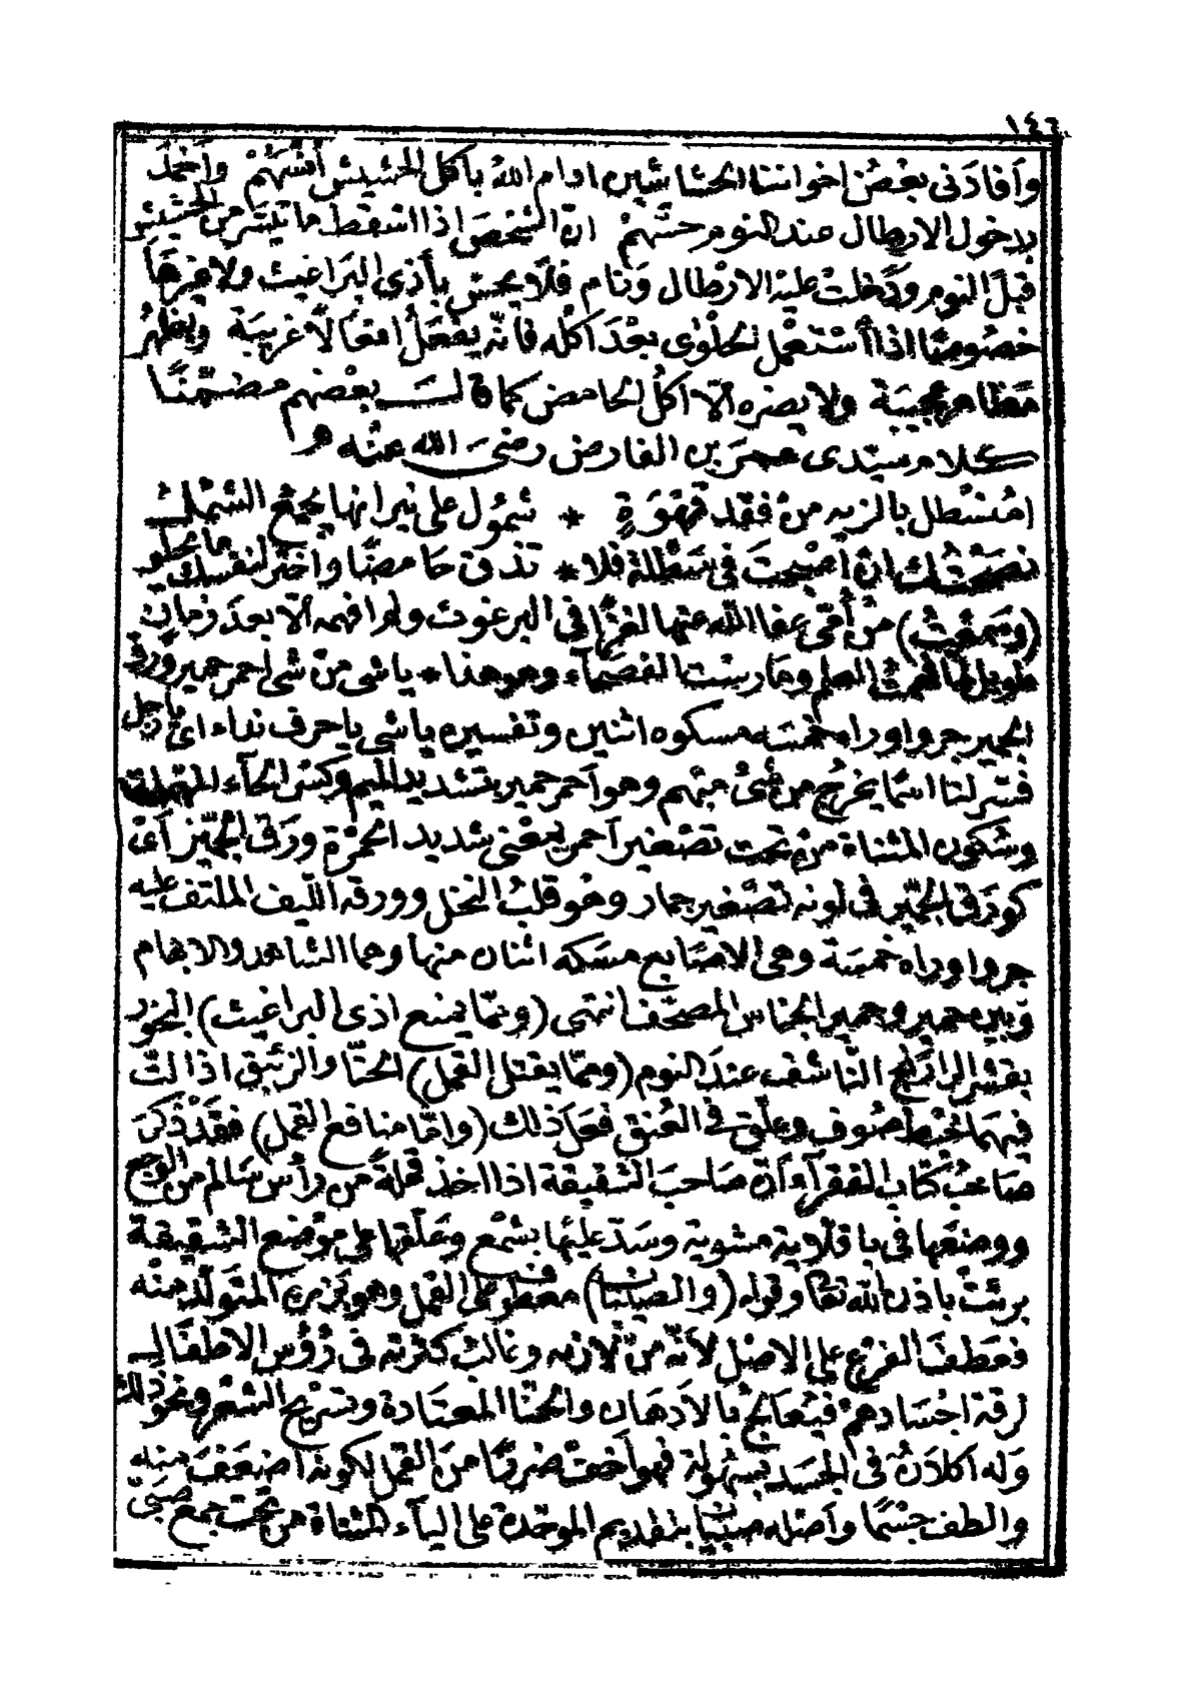 ١٤٦
وأفادنى بعض اخواننا الحشاشين ادام الله بأكل الحشيش أنسهم وأخمد
بدخول الارطال عند النوم حسّهم ان الشخص اذا استقط ما تيسر من الحشيش
قبل النوم ودخلت عليه الارطال ونام فلا يحس بأذى البراغيث ولا غيرها
خصوصا اذا استعمل الحلوى بعد اكله فانه يفعل افعالا غريبة ويظهر
مظاهر عجيبة ولا يضره الّا اكل الحامض كما قال بعضهم مضمّنا
كلام سيّدى عمر بن الفارض رضى الله عنه
امسطل بالزيه من فقد قهوة * شمول على نيرانها يجمع الشمل
نصحتك ان اصبحت فى سطلة فلا * تذق حامضا واختر لنفسك ما يحلو
(وسمعت) من أمّى عفا الله عنها لغزا فى البرغوث ولم افهمه الّا بعد زمان
طويل لما قرأت العلم ومارست الفصحاء وهو هذا * ياشى من شى احمر حمير ورق
الجمير جروا وراه خمسه مسكوه اثنين وتفسيره ياشى يا حرف نداء اى يا رجل
فسّر لنا اسما يخرج من شئ مبهم وهو آحمر حمير بتشديد الميم وكسر الحآء المهملة
وسكون المثناة من تحت تصغير آحمر يعنى شديد الحمرة ورق الجمّير آى
كورق الجمّير فى لونه تصغير جمار وهو قلب النخل وورقه اللّيف الملتف عليه
جروا وراه خمسة وهى الاصابع مسكه اثنان منها وهما الشاهد والابهام
وبين حمير وجمير الجناس المصحّف انتهى (وممّا يمنع اذى البراغيث) البخور
بقشر النارنج الناشف عند النوم (وممّا يقتل القمل) الحنّا والزئبق اذا لتّ
فيهما خيط صوف وعلّق فى العنق فعل ذلك (وامّا منافع القمل) فقد ذكر
صاحب كتاب الفقرآء آن صاحب الشقيقة اذا اخذ قملة من رأس سالم من الوجع
ووضعها فى باقلاوية مشوية وسدّ عليها بشمع وعلّقها على موضع الشقيقة
برئت باذن الله تعا وقوله (والصيبان) معطوف على القمل وهو بزره المتولّد منه
فعطف الفرع على الاصل لأنّه من لازمه وغالب كثرته فى رؤس الاطفال
لرقة اجسادهم فيتعالج بالآدهان والحنّا المعتادة وتسريح الشعر ونحو ذلك
وله اكلان فى الجسد بسهولة فهو آخف ضررا من القمل لكونه اضعف منه
والطف جسما وآصله صبيان بتقديم الموحّدة على اليآء المثناة من تحت جمع صبىّ